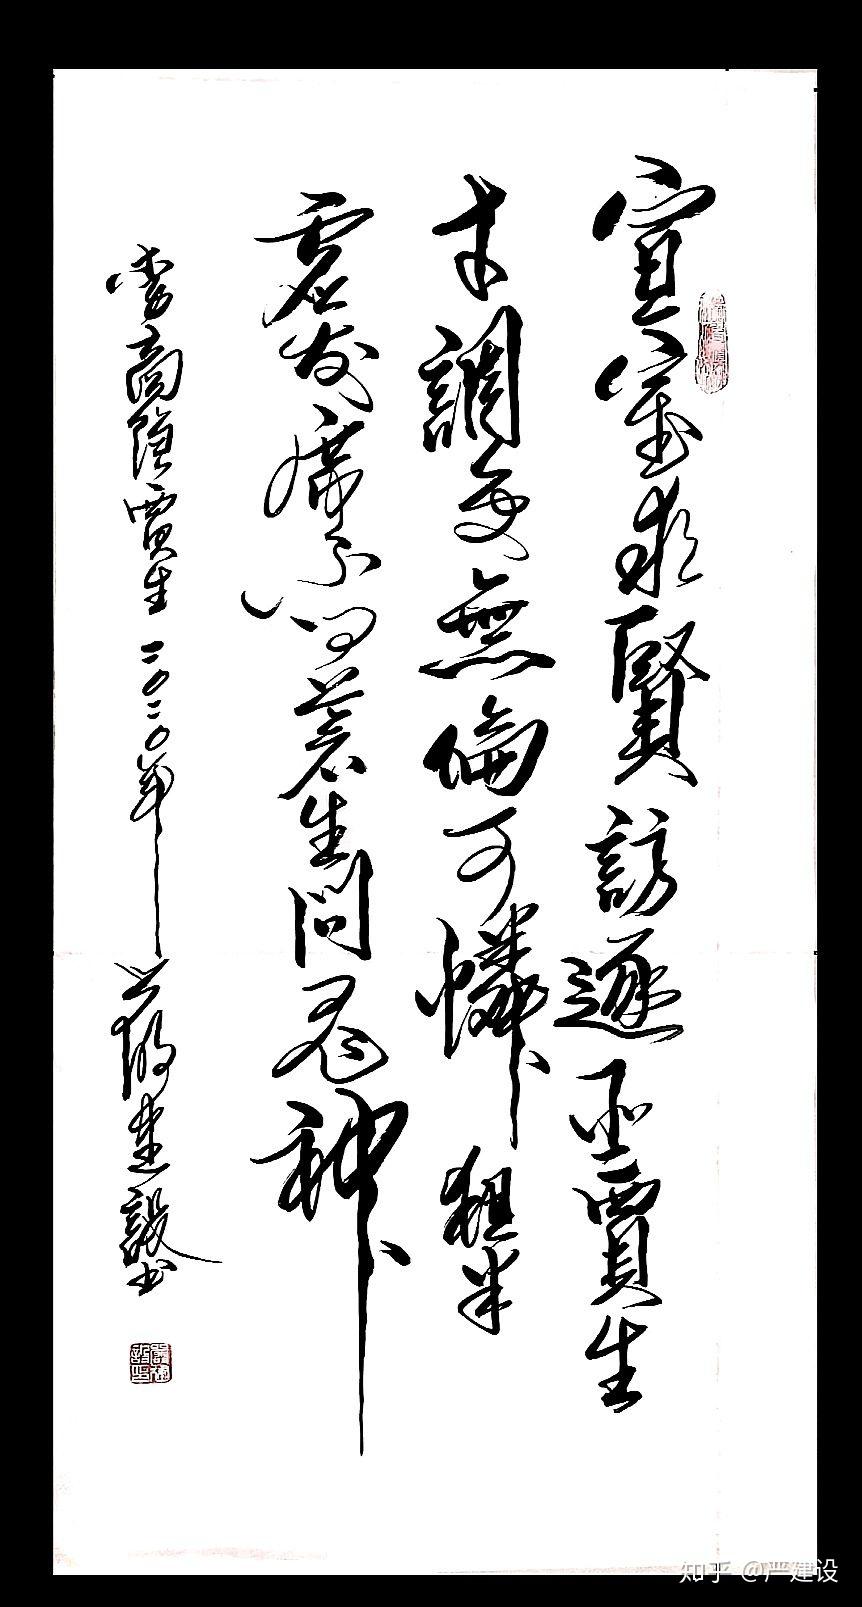 宣室求賢訪逐臣賈生
才調更無倫可憐夜半
虛前席不問蒼生問鬼神
李商隱賈生二〇二〇年 嚴建設书
知乎 @严建设